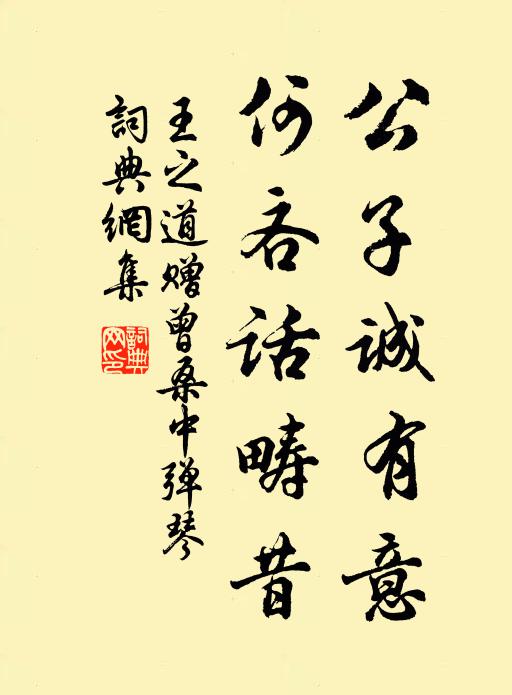 公子誠有意
何吝話疇昔
王之道赠曾桑中弹琴
詞典網集
詞典
网印